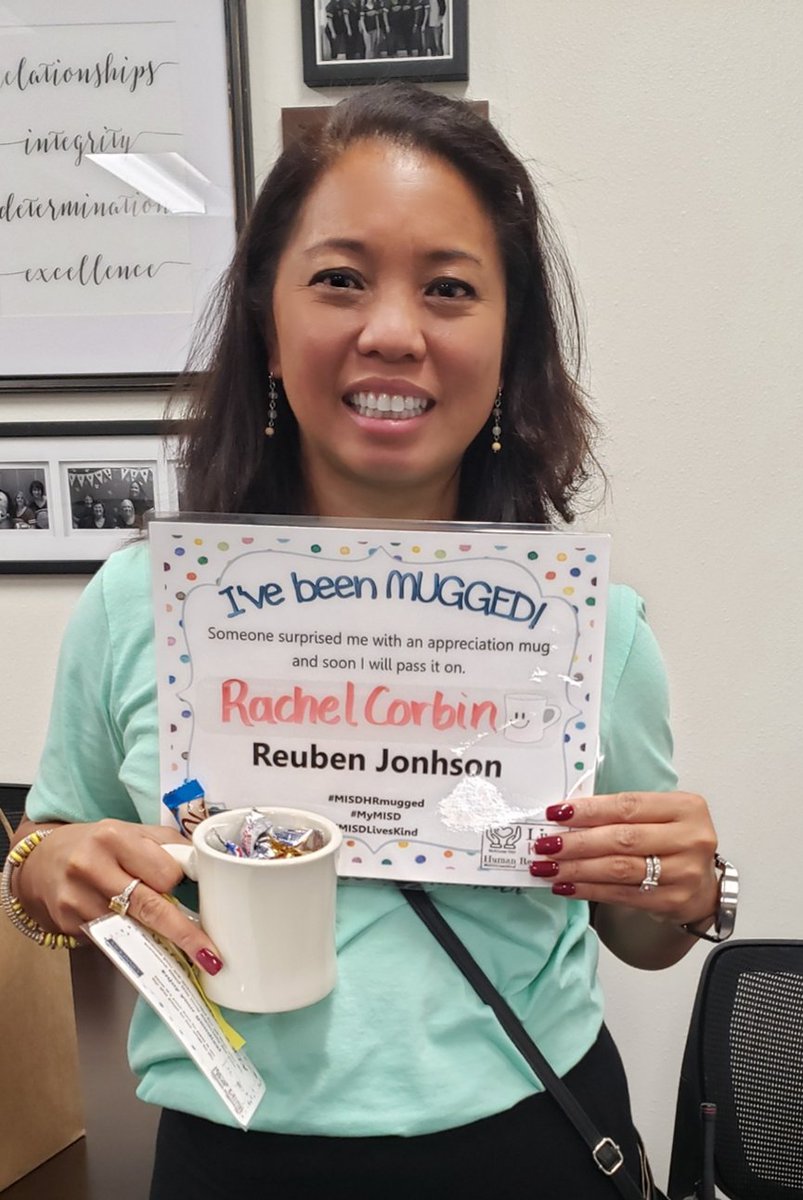 elationships
integrity
determination
excellence
I've been MUGGED!
Someone surprised me with an appreciation mug
and soon I will pass it on.
Rachel Corbin
Reuben Jonhson
#MISDHRmugged
#MyMISD
MISDLivesKind
Human Re